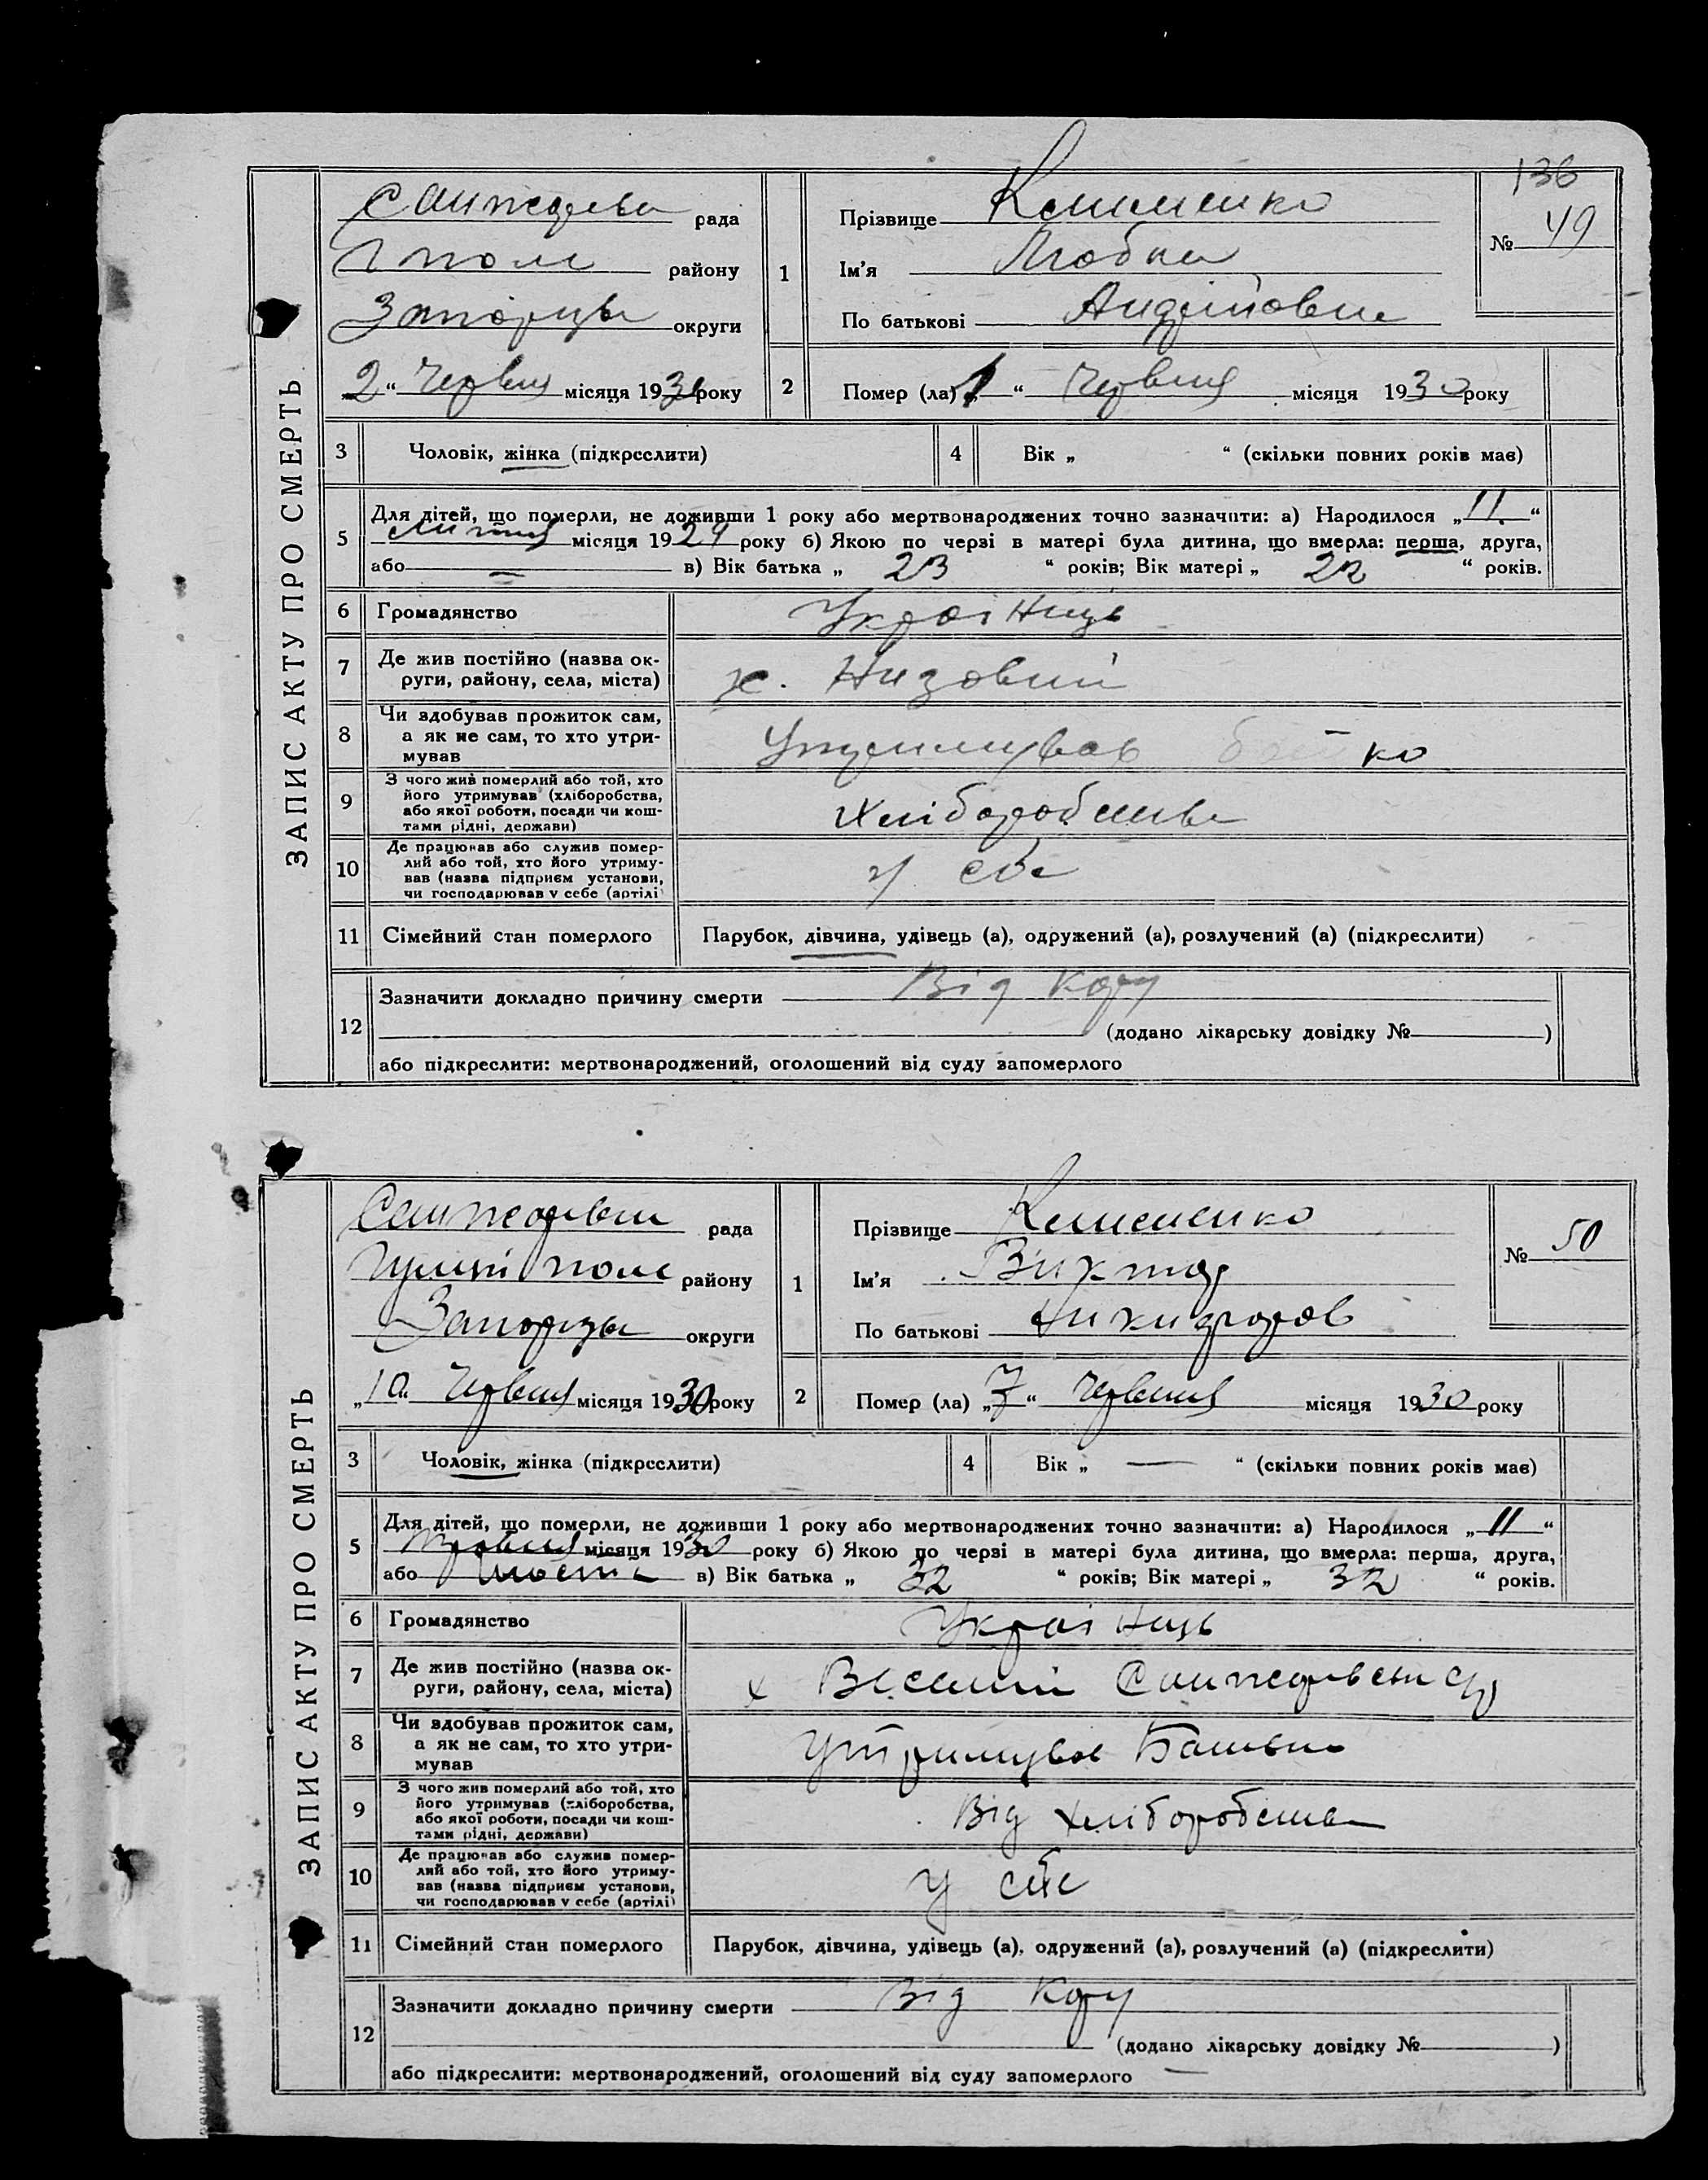 136
ЗАПИС АКТУ ПРО СМЕРТЬ
рада
Г поле району
округи
„2“ Червня місяця 1930 року
1
Прізвище Клименко
Ім'я Любка
По батькові Андріївна
№ 49
2 Помер (ла) „1“ Червня місяця 1930 року
3 Чоловік, жінка (підкреслити)
4 Вік „ “ (скільки повних років має)
5 Для дітей, що померли, не доживши 1 року або мертвонароджених точно зазначити: а) Народилося „11“
місяця 1929 року б) Якою по черзі в матері була дитина, що вмерла: перша, друга,
або — в) Вік батька „ 23 “ років; Вік матері „ 22 “ років.
6 Громадянство Українць
7 Де жив постійно (назва ок-
руги, району, села, міста) х. Низовий
8 Чи здобував прожиток сам,
а як не сам, то хто утри-
мував Утримував батко
9 З чого жив померлий або той, хто
його утримував (хліборобства,
або якої роботи, посади чи кош-
тами рідні, держави) Хліборобства
10 Де працював або служив помер-
лий або той, хто його утриму-
вав (назва підприєм установи,
чи господарював у себе (артілі) у себе
11 Сімейний стан померлого Парубок, дівчина, удівець (а), одружений (а), розлучений (а) (підкреслити)
12 Зазначити докладно причину смерти Від кору
(додано лікарську довідку № )
або підкреслити: мертвонароджений, оголошений від суду запомерлого
ЗАПИС АКТУ ПРО СМЕРТЬ
рада
поле району
округи
„10“ Червня місяця 1930 року
1
Прізвище Клименко
Ім'я Виктор
По батькові Никифоров
№ 50
2 Помер (ла) „7“ Червня місяця 1930 року
3 Чоловік, жінка (підкреслити)
4 Вік „ — “ (скільки повних років має)
5 Для дітей, що померли, не доживши 1 року або мертвонароджених точно зазначити: а) Народилося „11“
травня місяця 1930 року б) Якою по черзі в матері була дитина, що вмерла: перша, друга,
або шоста в) Вік батька „ 32 “ років; Вік матері „ 32 “ років.
6 Громадянство Українць
7 Де жив постійно (назва ок-
руги, району, села, міста) х Веселий
8 Чи здобував прожиток сам,
а як не сам, то хто утри-
мував Утримував Батько
9 З чого жив померлий або той, хто
його утримував (хліборобства,
або якої роботи, посади чи кош-
тами рідні, держави) Від хліборобства
10 Де працював або служив помер-
лий або той, хто його утриму-
вав (назва підприєм установи,
чи господарював у себе (артілі) у себе
11 Сімейний стан померлого Парубок, дівчина, удівець (а), одружений (а), розлучений (а) (підкреслити)
12 Зазначити докладно причину смерти Від Кору
(додано лікарську довідку № )
або підкреслити: мертвонароджений, оголошений від суду запомерлого